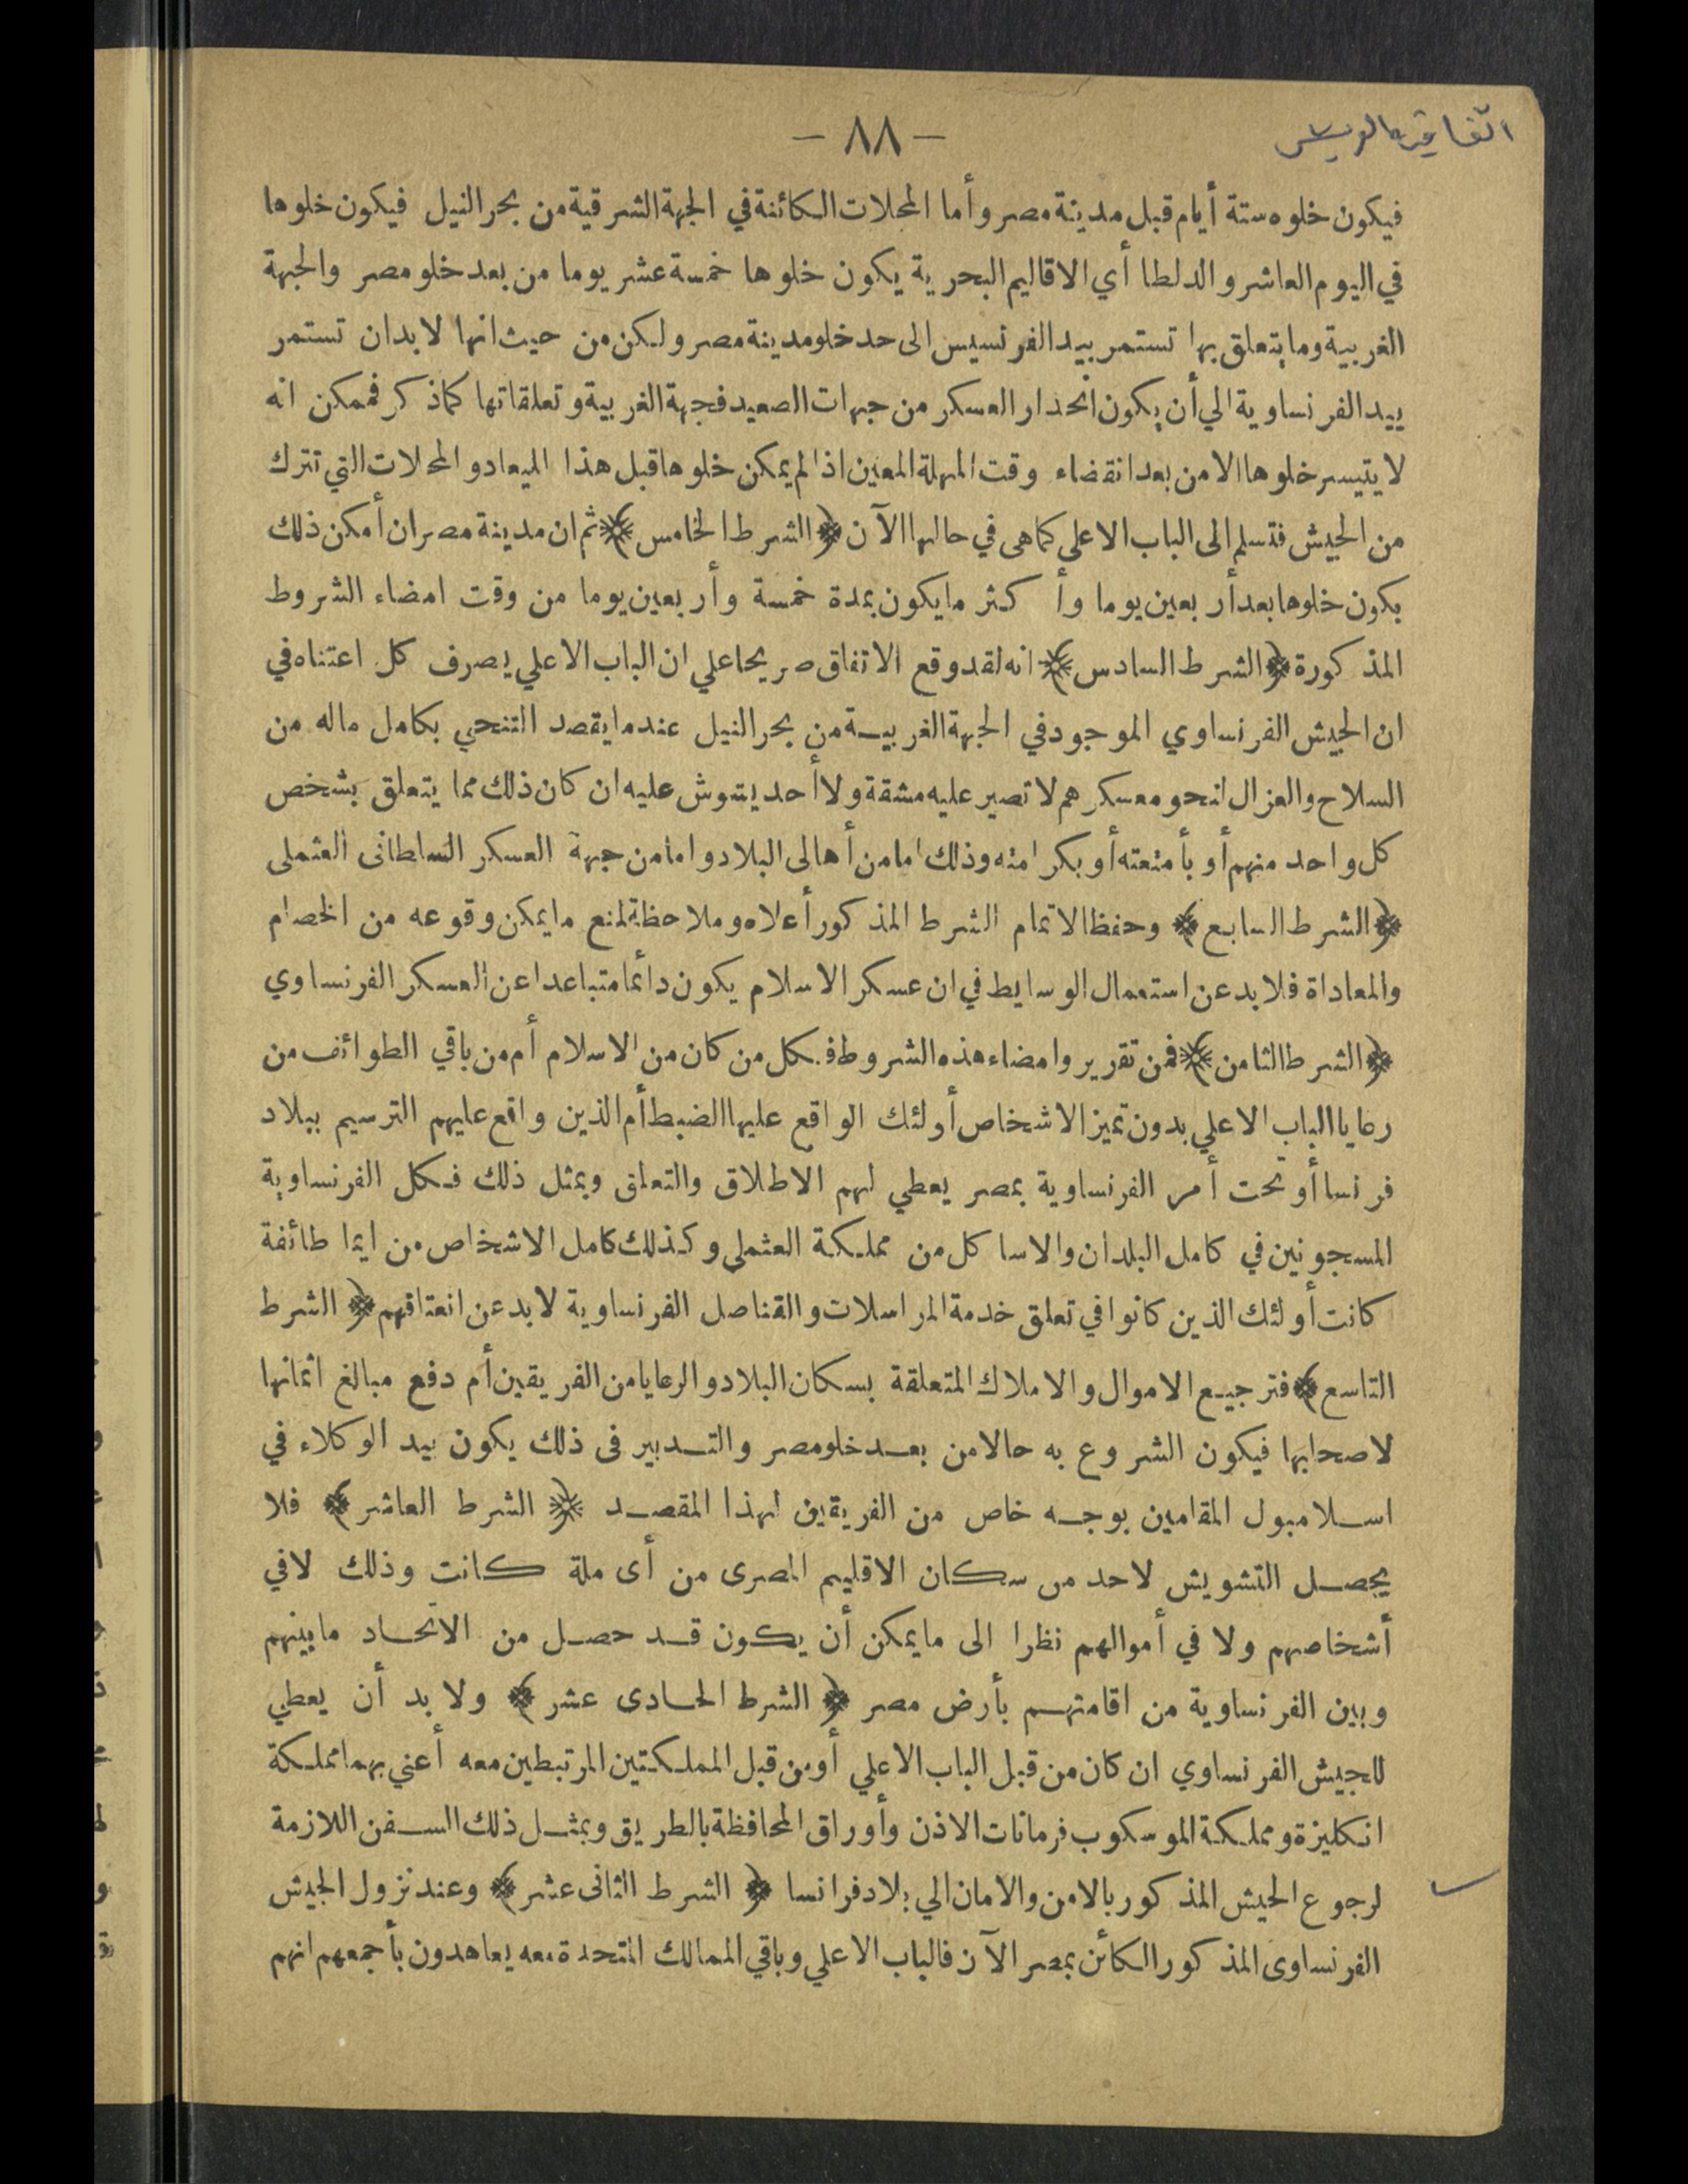 — ٨٨ —
فيكون خلوه ستة أيام قبل مدينة مصر وأما المحلات الكائنة في الجهة الشرقية من بحر النيل فيكون خلوها
في اليوم العاشر والدلطا أي الاقاليم البحرية يكون خلوها خمسة عشر يوما من بعد خلو مصر والجهة
الغربية وما يتعلق بها تستمر بيد الفرنسيس الى حد خلو مدينة مصر ولكن من حيث انها لا بد ان تستمر
بيد الفرنساوية الي أن يكون انحدار العسكر من جهات الصعيد فجهة الغربية وتعلقاتها كما ذكر فممكن انه
لا يتيسر خلوها الا من بعد انقضاء وقت المهلة المعين اذا لم يمكن خلوها قبل هذا الميعاد والمحلات التي تترك
من الجيش فتسلم الى الباب الاعلى كما هى في حالها الآن ﴿الشرط الخامس﴾ ثم ان مدينة مصر ان أمكن ذلك
يكون خلوها بعد أربعين يوما وأكثر ما يكون بمدة خمسة وأربعين يوما من وقت امضاء الشروط
المذكورة ﴿الشرط السادس﴾ انه لقد وقع الاتفاق صريحا علي ان الباب الاعلي يصرف كل اعتناه في
ان الجيش الفرنساوي الموجود في الجهة الغربية من بحر النيل عند ما يقصد التنحي بكامل ماله من
السلاح والعزال لنحو معسكرهم لا تصير عليه مشقة ولا أحد يشوش عليه ان كان ذلك مما يتعلق بشخص
كل واحد منهم أو بأمتعته أو بكرامته وذلك اما من أهالى البلاد واما من جهة العسكر السلطانى العثملى
﴿الشرط السابع﴾ وحفظا لاتمام الشرط المذكور أعلاه وملاحظة لمنع ما يمكن وقوعه من الخصام
والمعاداة فلا بد عن استعمال الوسايط في ان عسكر الاسلام يكون دائما متباعدا عن العسكر الفرنساوي
﴿الشرط الثامن﴾ فمن تقرير وامضاء هذه الشروط فكل من كان من الاسلام أم من باقي الطوائف من
رعايا الباب الاعلي بدون تميز الاشخاص أولئك الواقع عليها الضبط أم الذين واقع عليهم الترسيم ببلاد
فرنسا أو تحت أمر الفرنساوية بمصر يعطي لهم الاطلاق والتعلق وبمثل ذلك فكل الفرنساوية
المسجونين في كامل البلدان والاساكل من مملكة العثملي وكذلك كامل الاشخاص من ايما طائفة
كانت أولئك الذين كانوا في تعلق خدمة المراسلات والقناصل الفرنساوية لا بد عن انعتاقهم ﴿ الشرط
التاسع﴾ فترجيع الاموال والاملاك المتعلقة بسكان البلاد والرعايا من الفريقين أم دفع مبالغ اثمانها
لاصحابها فيكون الشروع به حالا من بعد خلو مصر والتدبير فى ذلك يكون بيد الوكلاء في
اسلامبول المقامين بوجه خاص من الفريقين لهذا المقصد ﴿ الشرط العاشر ﴾ فلا
يحصل التشويش لاحد من سكان الاقليم المصرى من أى ملة كانت وذلك لا في
أشخاصهم ولا في أموالهم نظرا الى ما يمكن أن يكون قد حصل من الاتحاد ما بينهم
وبين الفرنساوية من اقامتهم بأرض مصر ﴿ الشرط الحادى عشر ﴾ ولا بد أن يعطي
للجيش الفرنساوي ان كان من قبل الباب الاعلي أو من قبل المملكتين المرتبطين معه أعني بهما مملكة
انكليزة ومملكة الموسكوب فرمانات الاذن وأوراق المحافظة بالطريق وبمثل ذلك السفن اللازمة
لرجوع الجيش المذكور بالامن والامان الي بلاد فرانسا ﴿ الشرط الثانى عشر ﴾ وعند نزول الجيش
الفرنساوى المذكور الكائن بمصر الآن فالباب الاعلي وباقي الممالك المتحدة معه يعاهدون بأجمعهم انهم